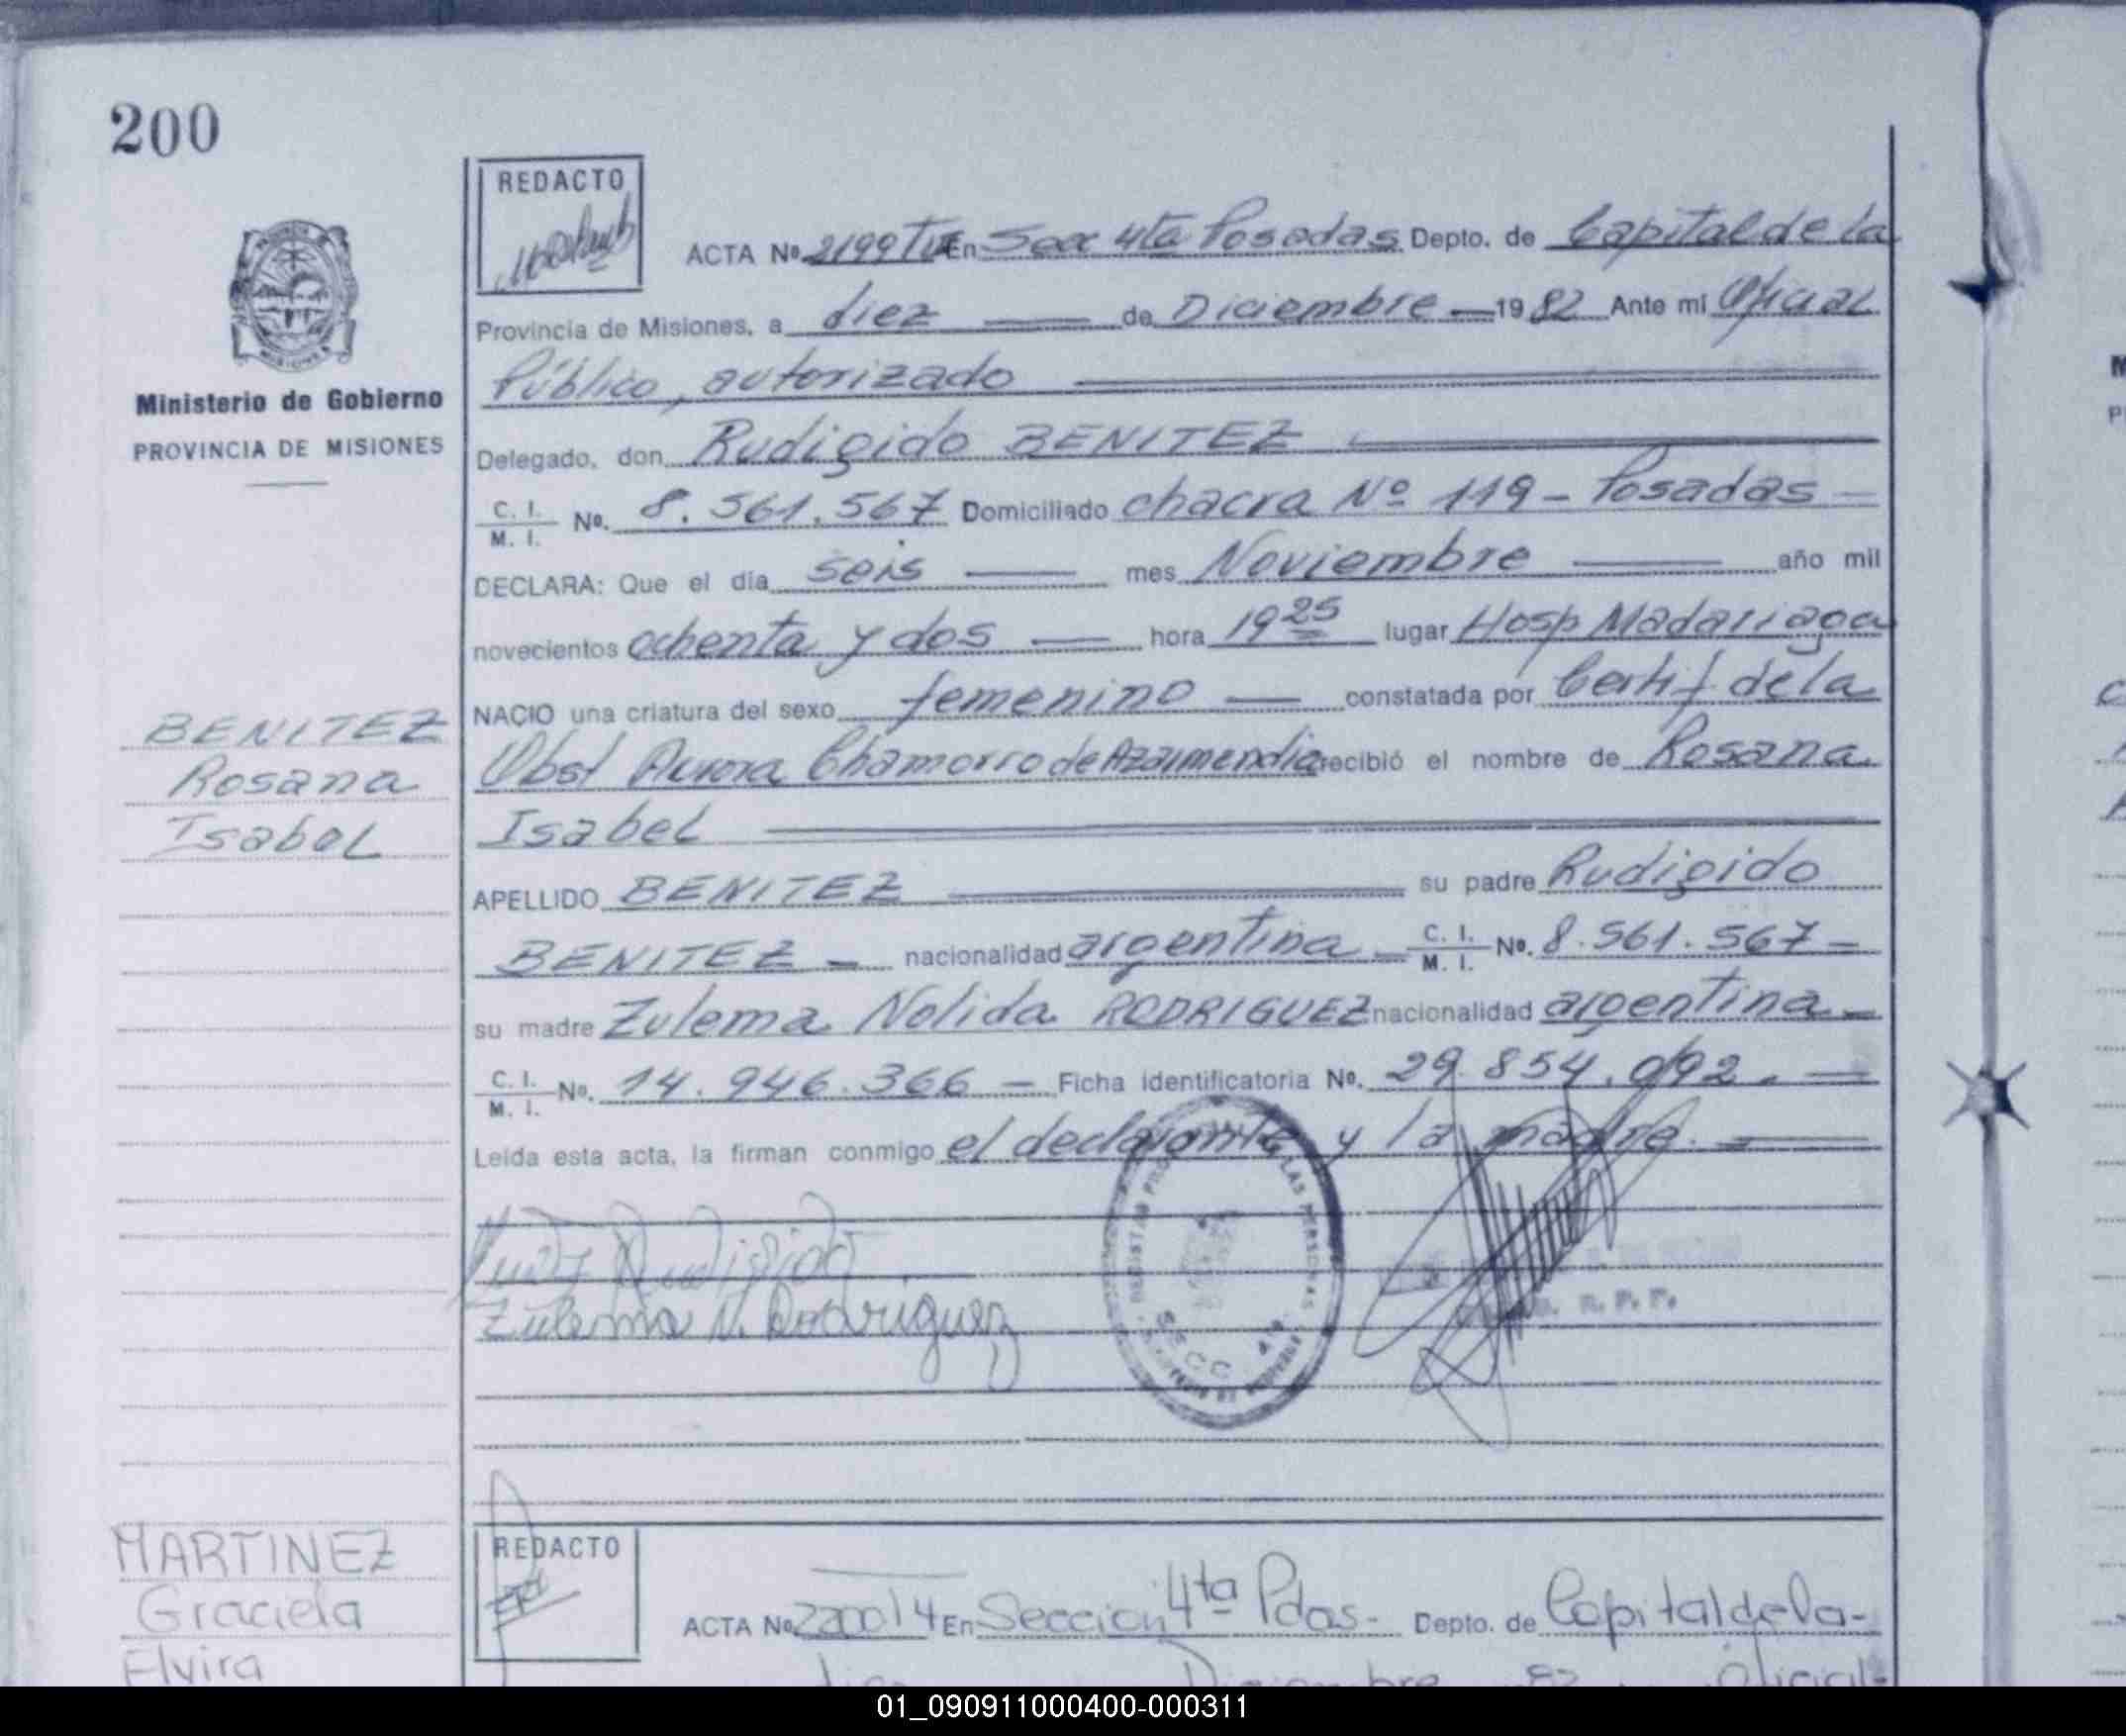 200
REDACTO
ACTA Nº 2199 TIV En Secc 4ta Posadas Depto. de Capital de la
Provincia de Misiones, a diez de Diciembre 1982 Ante mí Oficial
Público, autorizado
Ministerio de Gobierno
PROVINCIA DE MISIONES
Delegado, don Rudigido BENITEZ
C. I. M. I. No. 8.561.567 Domiciliado chacra Nº 119 - Posadas -
DECLARA: Que el día seis mes Noviembre año mil
novecientos ochenta y dos hora 19 25 lugar Hosp Madariaga
NACIO una criatura del sexo femenino constatada por Certif de la
BENITEZ
Rosana
Isabel
Obst Aurora Chamorro de Azaimendia recibió el nombre de Rosana
Isabel
APELLIDO BENITEZ su padre Rudigido
BENITEZ - nacionalidad argentina - C. I. M. I. No. 8.561.567 -
su madre Zulema Nolida RODRIGUEZ nacionalidad argentina -
C. I. M. I. No. 14.946.366 - Ficha identificatoria No. 29.854.092. -
Leída esta acta, la firman conmigo el declarante y la madre. -
Rudigido
Zulema N. Rodriguez
LAS PERSONAS
SECC. 4ta
R. P. P.
MARTINEZ
Graciela
Elvira
REDACTO
ACTA No. 2200 T4 En Seccion 4ta Pdas- Depto. de Capital de la-
Diciembre 82 oficial-
01_090911000400-000311